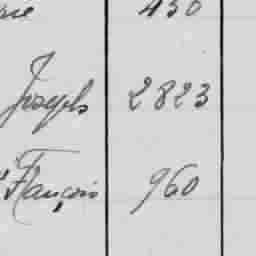 430
Joseph 2823
François 960